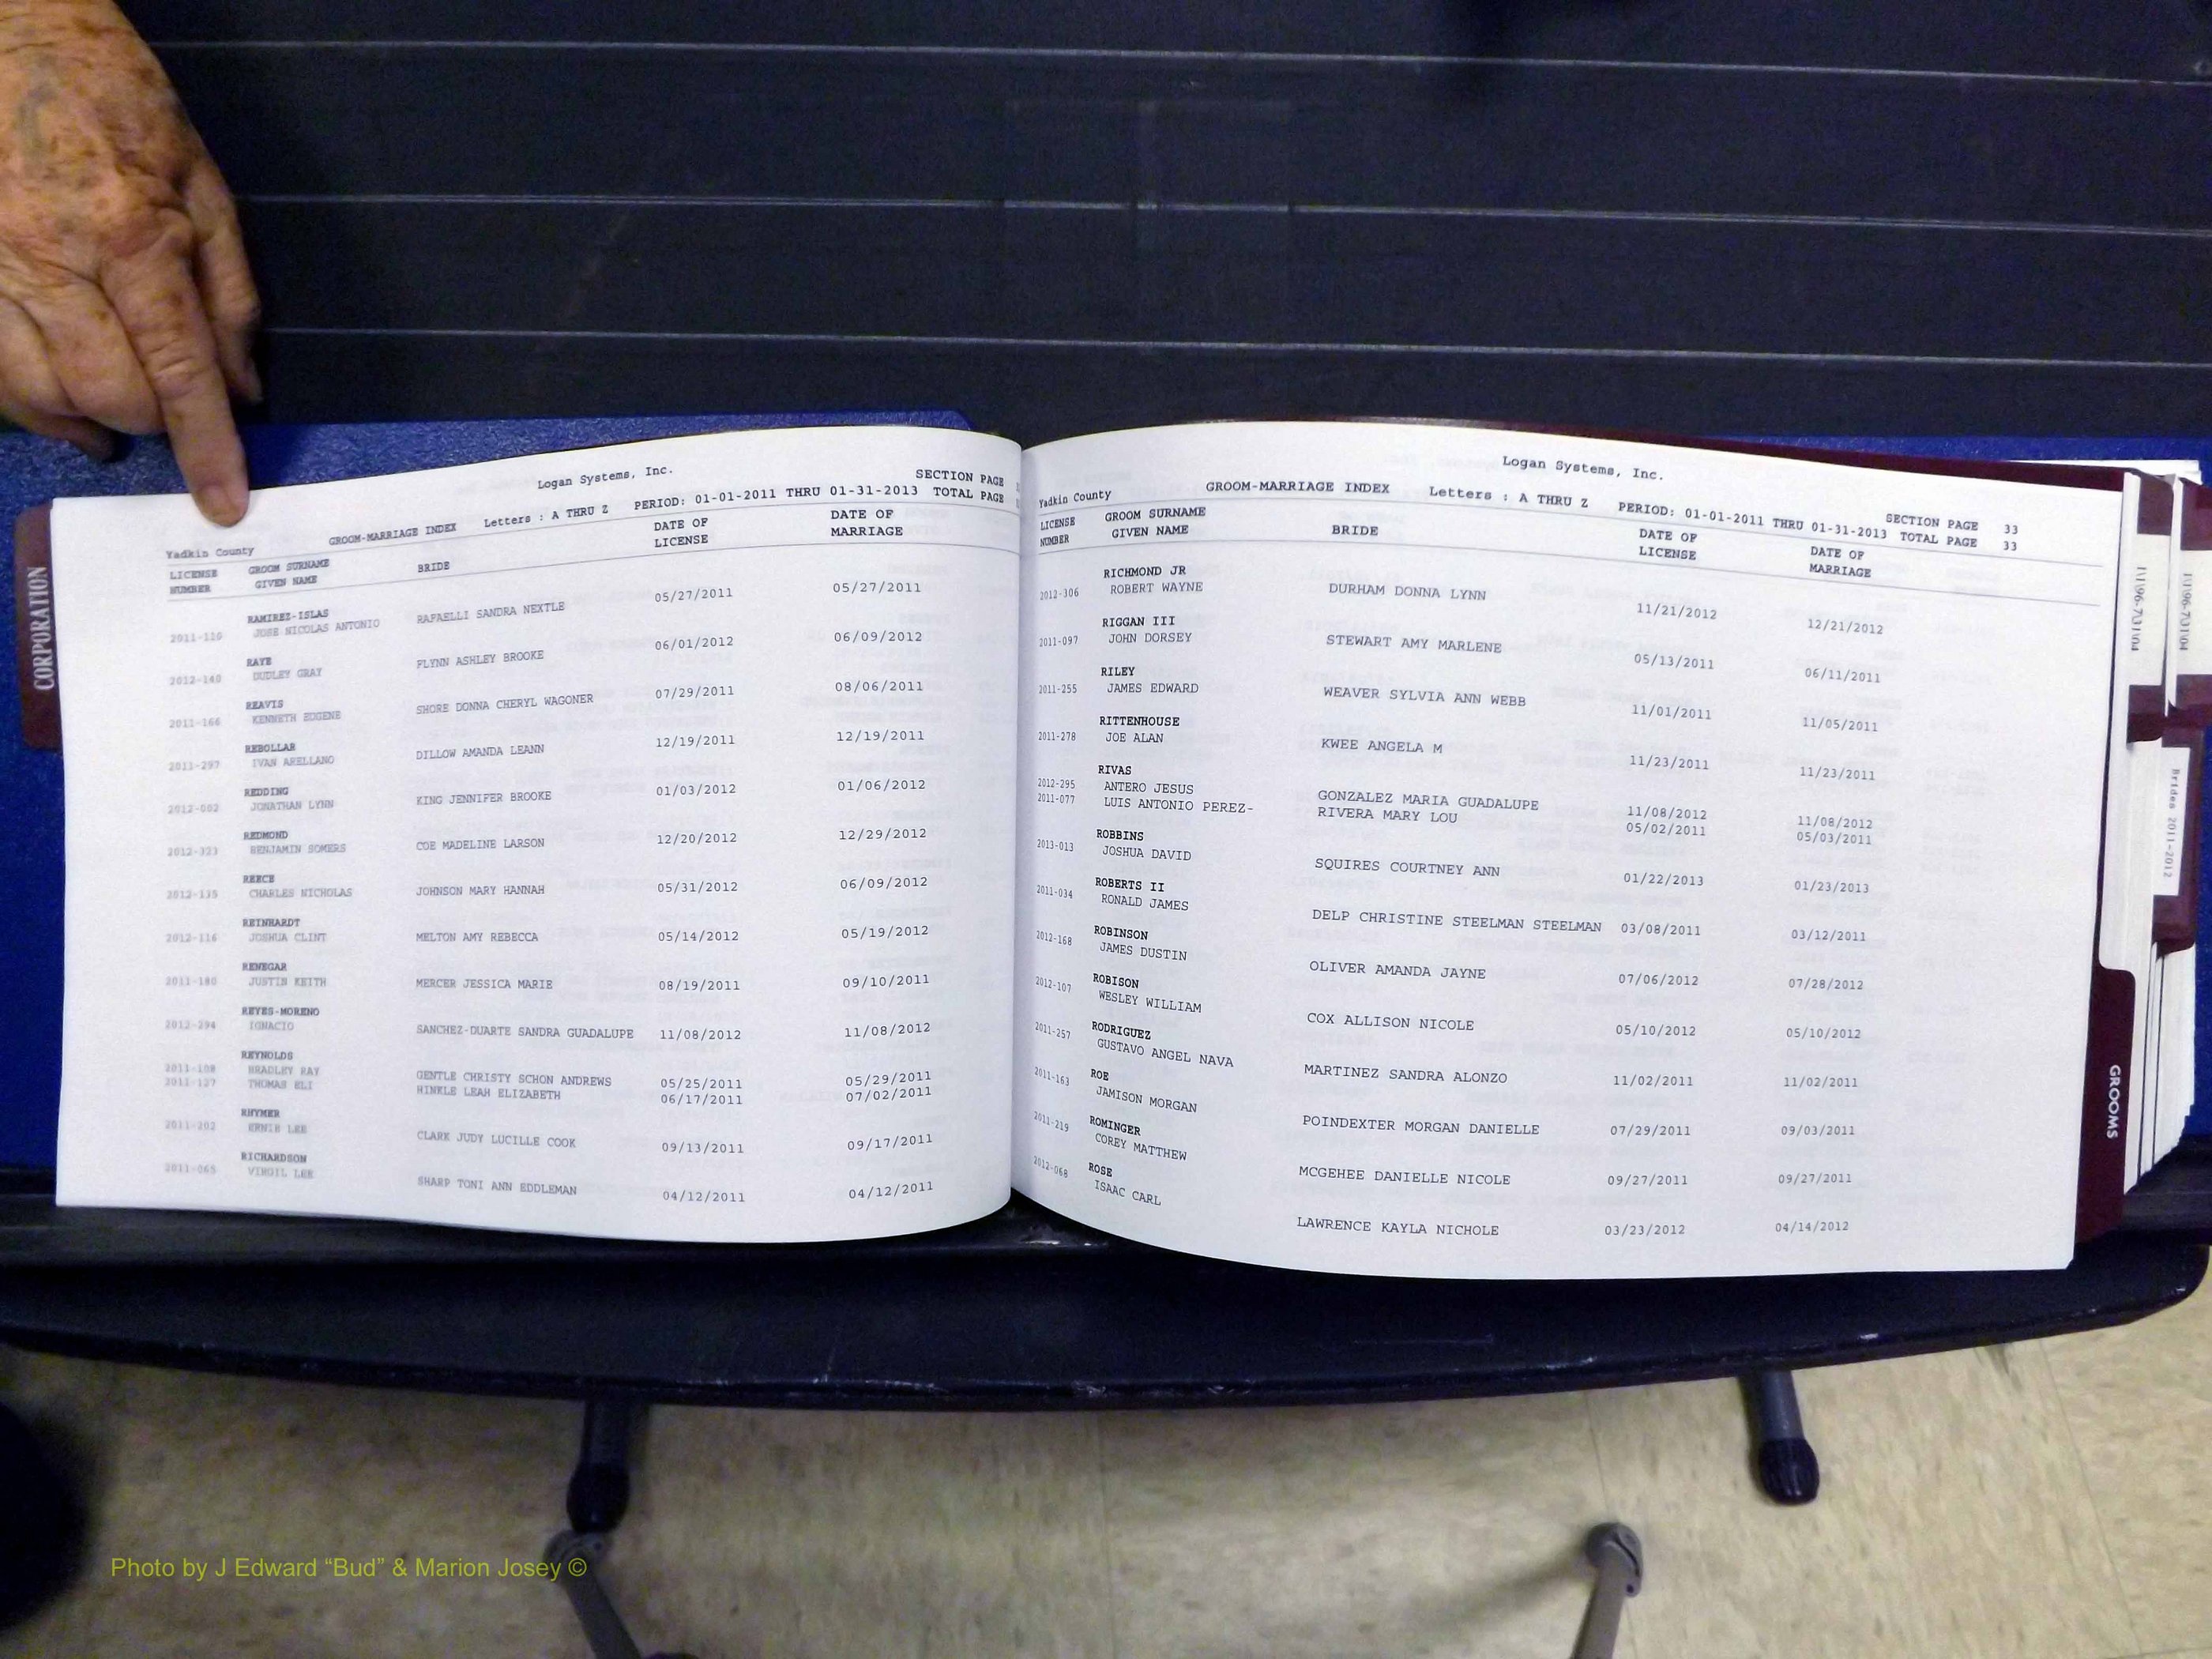 CORPORATION
Logan Systems, Inc.
SECTION PAGE
Yadkin County GROOM-MARRIAGE INDEX Letters : A THRU Z PERIOD: 01-01-2011 THRU 01-31-2013 TOTAL PAGE
LICENSE GROOM SURNAME DATE OF DATE OF
NUMBER GIVEN NAME BRIDE LICENSE MARRIAGE
RAMIREZ-ISLAS
JOSE NICOLAS ANTONIO RAFAELLI SANDRA NEXTLE 05/27/2011 05/27/2011
RAYE
2012-140 DUDLEY GRAY FLYNN ASHLEY BROOKE 06/01/2012 06/09/2012
REAVIS
2011-166 KENNETH EUGENE SHORE DONNA CHERYL WAGONER 07/29/2011 08/06/2011
REBOLLAR
2011-297 IVAN ARELLANO DILLOW AMANDA LEANN 12/19/2011 12/19/2011
REDDING
2012-002 JONATHAN LYNN KING JENNIFER BROOKE 01/03/2012 01/06/2012
REDMOND
2012-323 BENJAMIN SOMERS COE MADELINE LARSON 12/20/2012 12/29/2012
REECE
2012-135 CHARLES NICHOLAS JOHNSON MARY HANNAH 05/31/2012 06/09/2012
REINHARDT
2012-116 JOSHUA CLINT MELTON AMY REBECCA 05/14/2012 05/19/2012
RENEGAR
2011-180 JUSTIN KEITH MERCER JESSICA MARIE 08/19/2011 09/10/2011
REYES-MORENO
2012-294 IGNACIO SANCHEZ-DUARTE SANDRA GUADALUPE 11/08/2012 11/08/2012
REYNOLDS
2011-108 BRADLEY RAY GENTLE CHRISTY SCHON ANDREWS 05/25/2011 05/29/2011
2011-127 THOMAS ELI HINKLE LEAH ELIZABETH 06/17/2011 07/02/2011
RHYMER
2011-202 ERNIE LEE CLARK JUDY LUCILLE COOK 09/13/2011 09/17/2011
RICHARDSON
2011-065 VIRGIL LEE SHARP TONI ANN EDDLEMAN 04/12/2011 04/12/2011
Logan Systems, Inc.
SECTION PAGE 33
Yadkin County GROOM-MARRIAGE INDEX Letters : A THRU Z PERIOD: 01-01-2011 THRU 01-31-2013 TOTAL PAGE 33
LICENSE GROOM SURNAME DATE OF DATE OF
NUMBER GIVEN NAME BRIDE LICENSE MARRIAGE
RICHMOND JR
2012-306 ROBERT WAYNE DURHAM DONNA LYNN 11/21/2012 12/21/2012
RIGGAN III
2011-097 JOHN DORSEY STEWART AMY MARLENE 05/13/2011 06/11/2011
RILEY
2011-255 JAMES EDWARD WEAVER SYLVIA ANN WEBB 11/01/2011 11/05/2011
RITTENHOUSE
2011-278 JOE ALAN KWEE ANGELA M 11/23/2011 11/23/2011
RIVAS
2012-295 ANTERO JESUS GONZALEZ MARIA GUADALUPE 11/08/2012 11/08/2012
2011-077 LUIS ANTONIO PEREZ- RIVERA MARY LOU 05/02/2011 05/03/2011
ROBBINS
2013-013 JOSHUA DAVID SQUIRES COURTNEY ANN 01/22/2013 01/23/2013
ROBERTS II
2011-034 RONALD JAMES DELP CHRISTINE STEELMAN STEELMAN 03/08/2011 03/12/2011
ROBINSON
2012-168 JAMES DUSTIN OLIVER AMANDA JAYNE 07/06/2012 07/28/2012
ROBISON
2012-107 WESLEY WILLIAM COX ALLISON NICOLE 05/10/2012 05/10/2012
RODRIGUEZ
2011-257 GUSTAVO ANGEL NAVA MARTINEZ SANDRA ALONZO 11/02/2011 11/02/2011
ROE
2011-163 JAMISON MORGAN POINDEXTER MORGAN DANIELLE 07/29/2011 09/03/2011
ROMINGER
2011-219 COREY MATTHEW MCGEHEE DANIELLE NICOLE 09/27/2011 09/27/2011
ROSE
2012-068 ISAAC CARL LAWRENCE KAYLA NICHOLE 03/23/2012 04/14/2012
1\1\96-7\31\04
1\1\96-7\31\04
Brides 2011-2012
GROOMS
Photo by J Edward “Bud” & Marion Josey ©